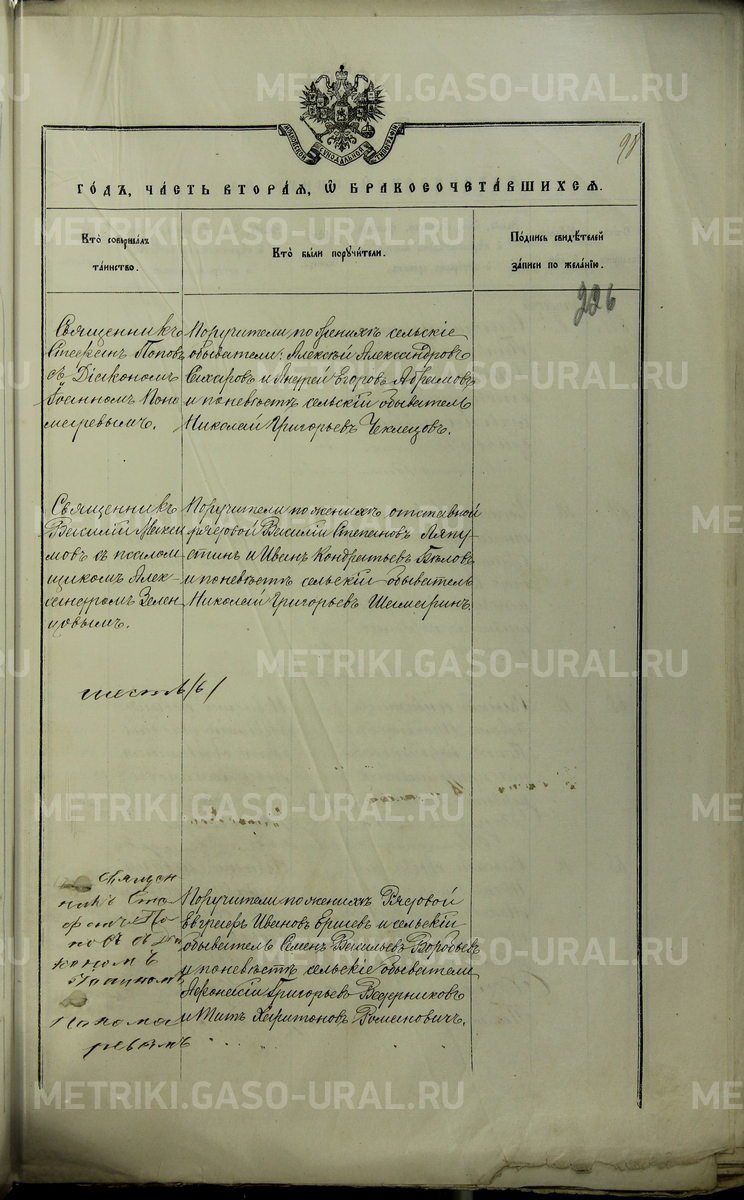 METRIKI.GASO-URAL.RU
МОСКОВСКОЙ СѴНОДАЛЬНОЙ ТИПОГРАФІИ
98
ГО́ДЪ, ЧА́СТЬ ВТОРА́Я, Ѡ҆ БРАКОСОЧЕТА́ВШИХСЯ.
Кто̀ соверша́лъ
та́инство.
Кто̀ бы́ли порꙋчи́тели.
По́дпись свидѣ́телей
за́писи по жела́нїю.
226
Священникъ
Стефанъ Поповъ
съ Діакономъ
Іоанномъ Поно
маревымъ.
Поручители по женихѣ сельскіе
обыватели: Алексѣй Александровъ
Сахаровъ и Андрей Егоровъ Абрамовъ
и по невѣстѣ сельскій обыватель
Николай Григорьевъ Чеклецовъ.
Священникъ
Василій
съ псалом
щикомъ Алек-
сандромъ Зелен
цовымъ.
Поручители по женихѣ отставной
рядовой Василій Степановъ Ляпу-
стинъ и Иванъ Кондратьевъ Бѣловъ
и по невѣстѣ сельскій обыватель
Николай Григорьевъ Шамаринъ
шесть /6/
Священ
никъ Сте
фанъ По
повъ съ Діа
кономъ
Іоанном
Понома
ревымъ
Поручители по женихѣ Рядовой
Евграфъ Ивановъ Ершевъ и сельскій
обыватель Семенъ Васильевъ Воробьевъ
и по невѣстѣ сельскіе обыватели
Афонасій Григорьевъ Ведерниковъ
и Титъ Харитоновъ Романовичъ.